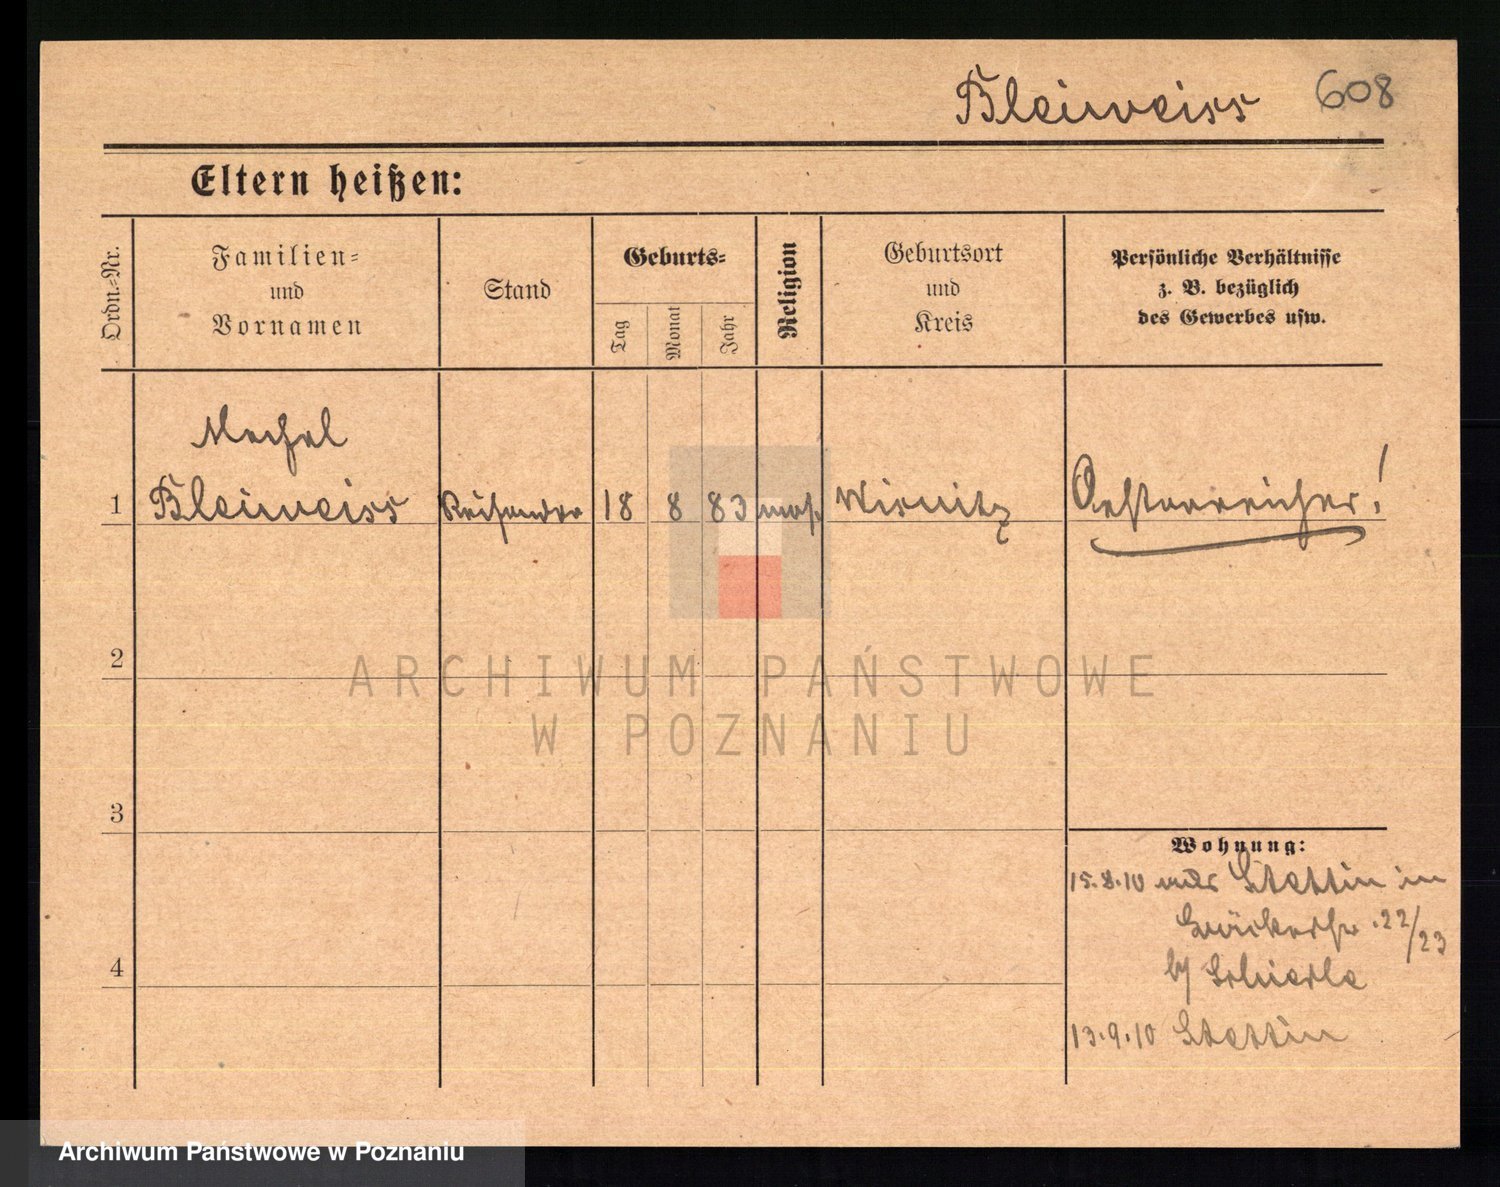 Bleiweiss 608
Eltern heißen:
Ordn.-Nr.
Familien-
und
Vornamen
Stand
Geburts-
Tag
Monat
Jahr
Religion
Geburtsort
und
Kreis
Persönliche Verhältnisse
z. B. bezüglich
des Gewerbes usw.
Mechel
1 Bleiweiss Reisender 18 8 83 mos. Wisnitz Oesterreicher!
2
3
4
Wohnung:
15.8.10 aus Stettin in
22/23
b/
13.9.10 Stettin
ARCHIWUM PAŃSTWOWE
W POZNANIU
Archiwum Państwowe w Poznaniu